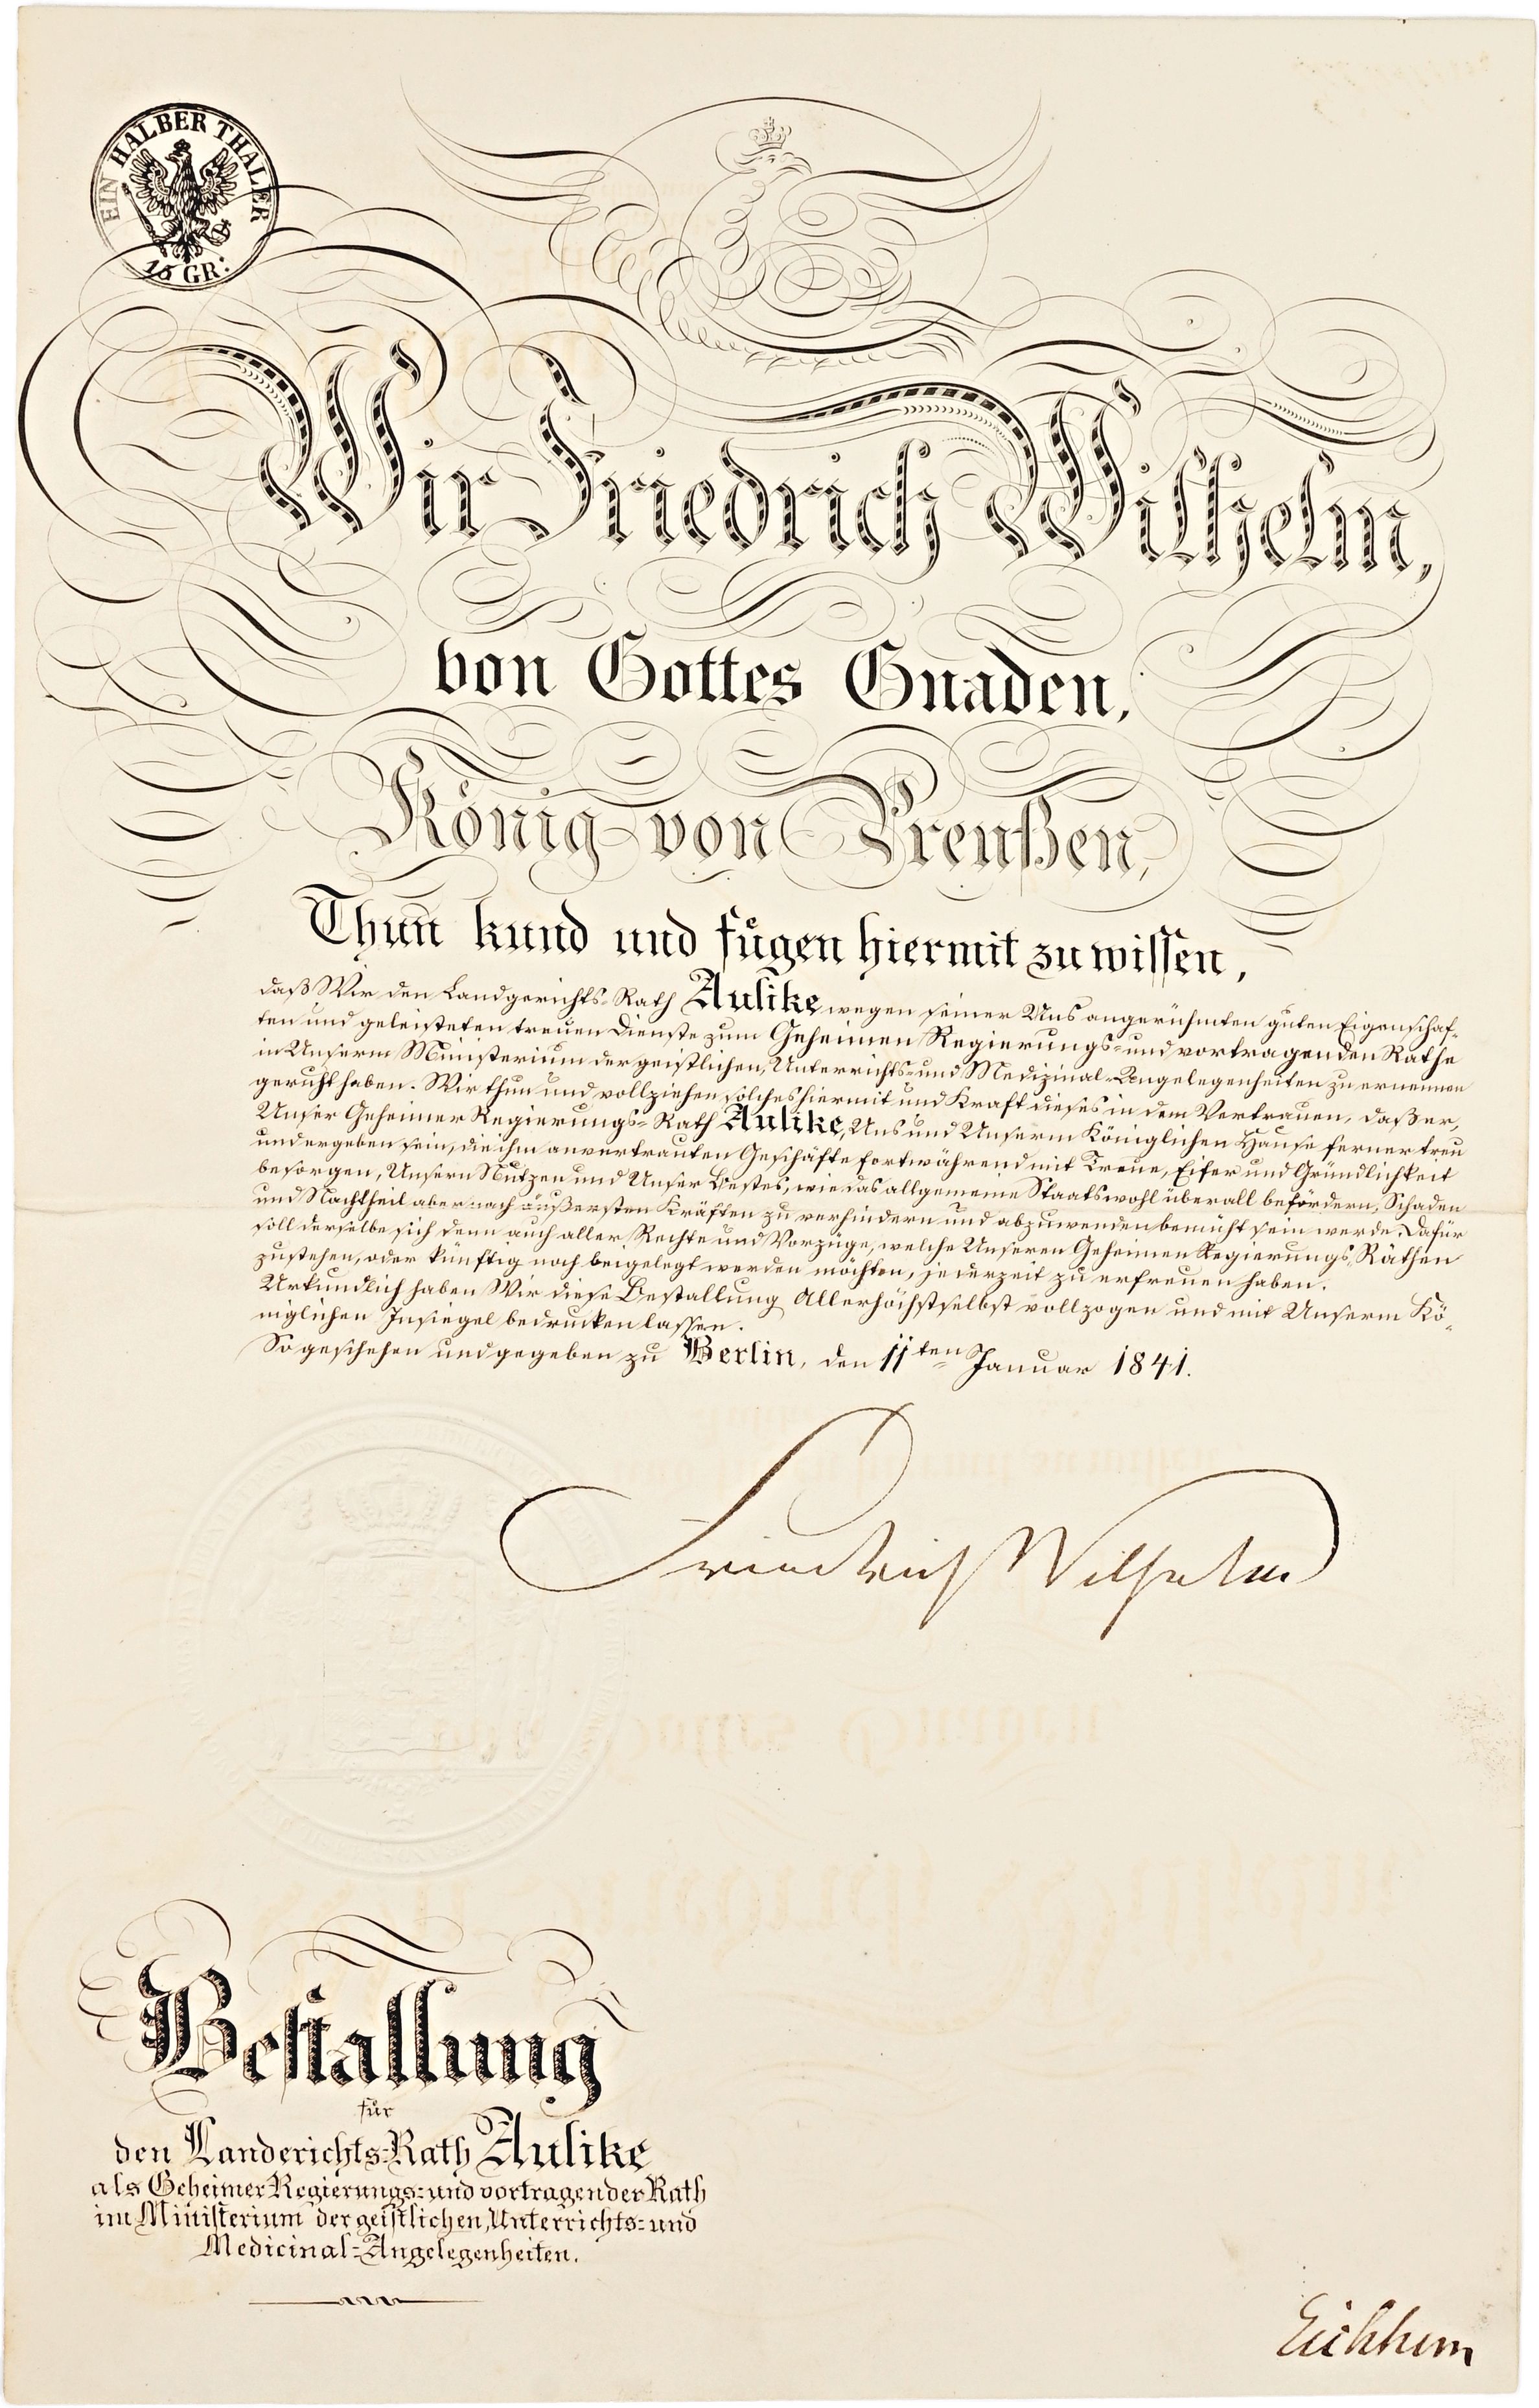 EIN HALBER THALER
15 GR:
Wir Friedrich Wilhelm,
von Gottes Gnaden,
König von Preußen,
Thun kund und fügen hiermit zu wissen,
daß Wir den Landgerichts-Rath Aulike wegen seiner Uns angerühmten guten Eigenschaf-
ten und geleisteten treuen Dienste zum Geheimen Regierungs- und vortragenden Rathe
in Unserm Ministerium der geistlichen, Unterrichts- und Medizinal-Angelegenheiten zu ernennen
geruht haben. Wir thun und vollziehen solches hiermit und Kraft dieses in dem Vertrauen, daß er,
Unser Geheimer Regierungs-Rath Aulike, Uns und Unserm Königlichen Hause ferner treu
und ergeben sein, die ihm anvertrauten Geschäfte fortwährend mit Treue, Eifer und Gründlichkeit
besorgen, Unsern Nutzen und Unser Bestes, wie das allgemeine Staatswohl überall befördern, Schaden
und Nachtheil aber nach äußersten Kräften zu verhindern und abzuwenden bemüht sein werde. Dafür
soll derselbe sich denn auch aller Rechte und Vorzüge, welche Unseren Geheimen Regierungs-Räthen
zustehen, oder künftig noch beigelegt werden möchten, jederzeit zu erfreuen haben.
Urkundlich haben Wir diese Bestallung Allerhöchstselbst vollzogen und mit Unserm Kö-
niglichen Insiegel bedrucken lassen.
So geschehen und gegeben zu Berlin, den 11ten Januar 1841.
Friedrich Wilhelm
Bestallung
für
den Landerichts-Rath Aulike
als Geheimer Regierungs- und vortragender Rath
im Ministerium der geistlichen, Unterrichts- und
Medicinal-Angelegenheiten.
Eichhorn